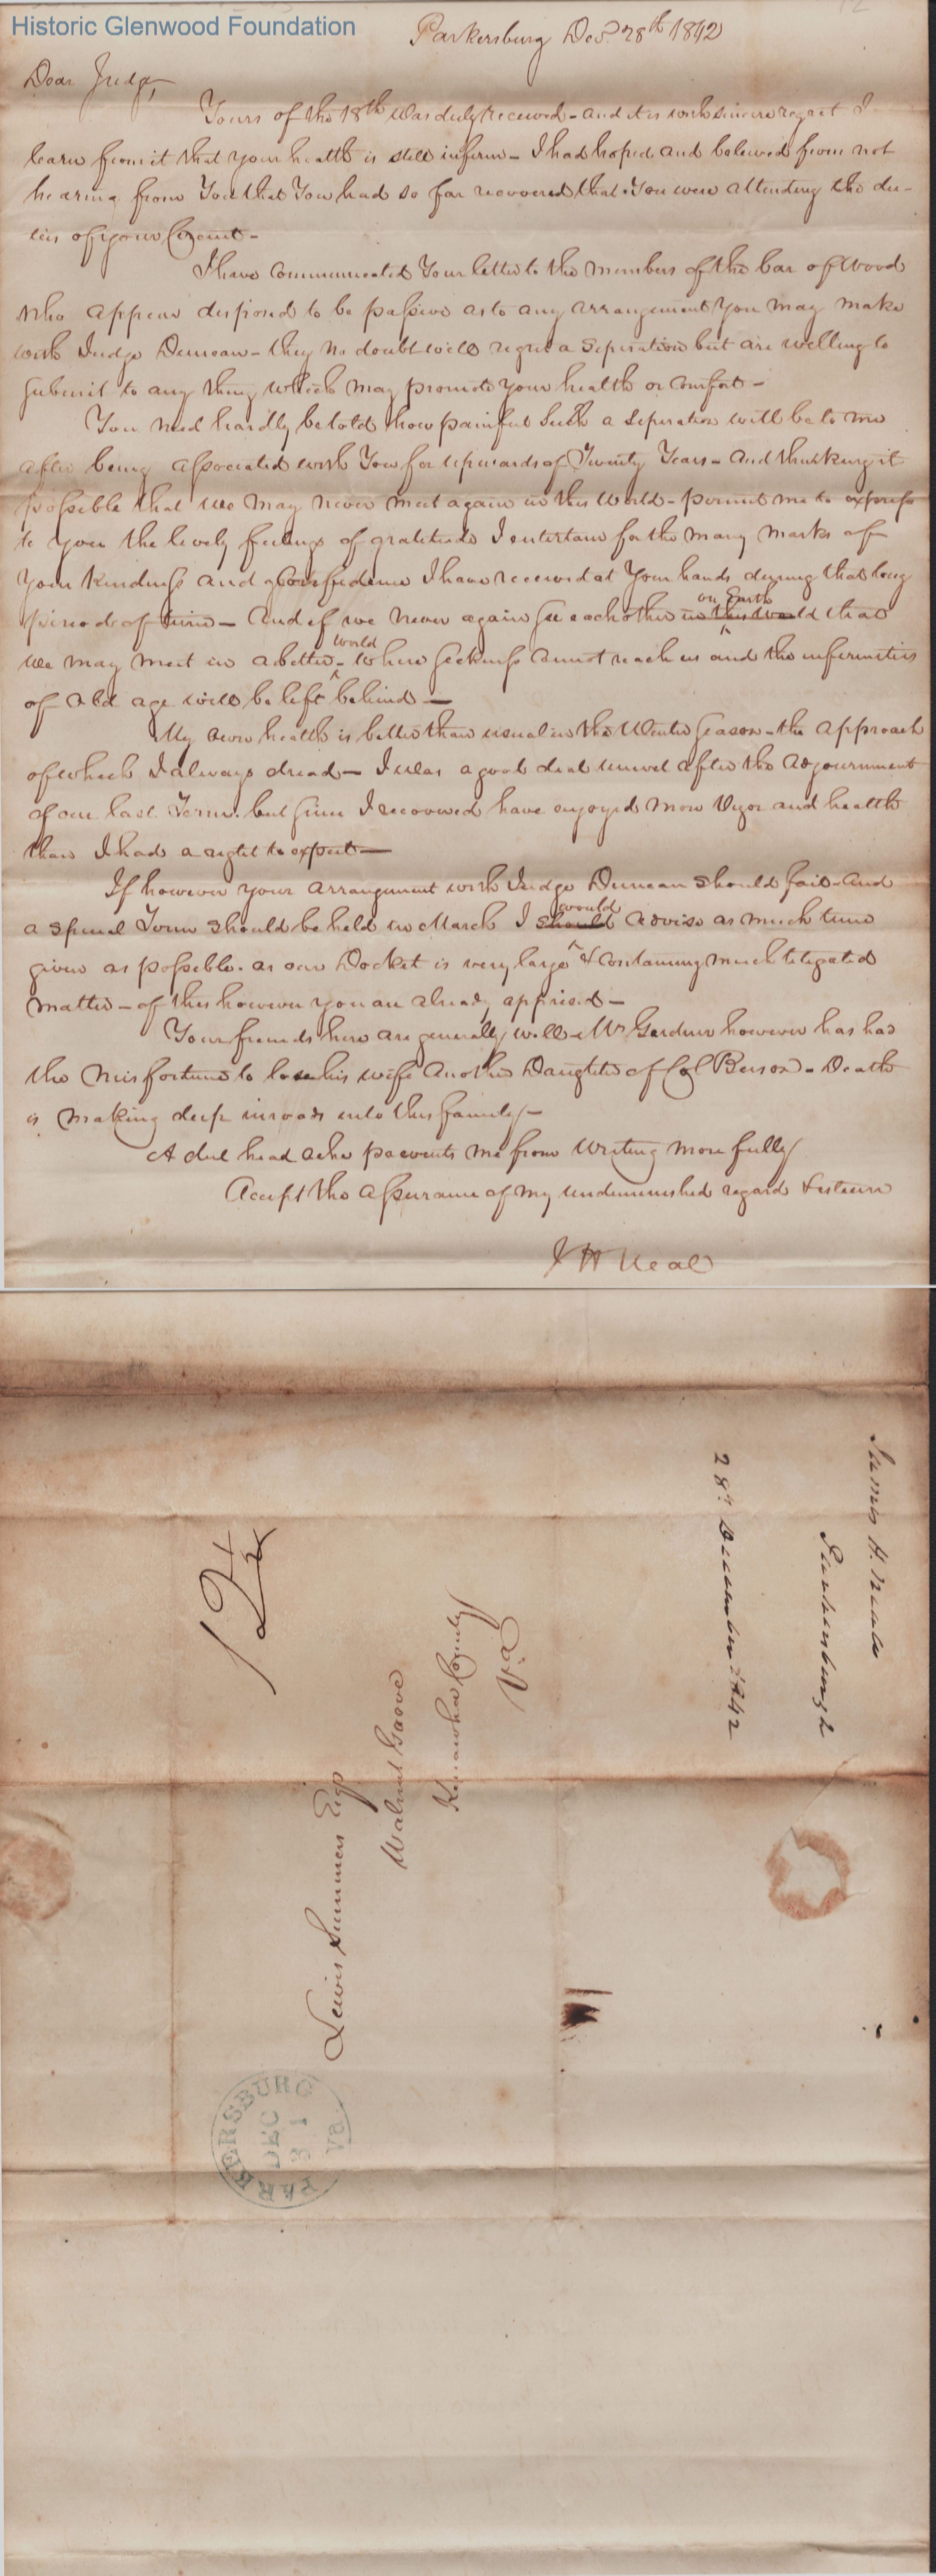 Historic Glenwood Foundation
Parkersburg Dec 28th 1842
Dear Judge,
Yours of the 18th was duly received - and it is with sincere regret I
learn from it that your health is still infirm - I had hoped and believed from not
hearing from You that You had so far recovered that You were attending the du-
ties of your Circuit -
I have communicated Your letter to the members of the bar of Wood
who appear disposed to be passive as to any arrangement You may make
with Judge Duncan - they no doubt will regret a Seperation but are willing to
submit to any thing which may promote your health or comfort -
You need hardly be told how painful such a seperation will be to me
after being associated with You for upwards of Twenty Years - and thinking it
possible that we may never meet again in this World - permit me to express
to you the lively feelings of gratitude I entertain for the many marks of
Your kindness and confidence I have received at Your hands during that long
period of time - And if we never again see each other in this world on Earth that
we may meet in a better world - where sickness cannot reach us and the infirmities
of old age will be left behind -
My own health is better than usual in the Winter season - the approach
of which I always dread - I was a good deal unwell after the adjournment
of our last Term. but since I recovered have enjoyed more Vigor and health
than I had a right to expect -
If however your arrangement with Judge Duncan should fail - and
a special Term should be held in March I should would advise as much time
given as possible. as our Docket is very large & containing much litigated
matter - of this however you are already apprised -
Your friends here are generally well - Mr Gardner however has had
the misfortune to lose his wife another Daughter of Col Beeson - Death
is making deep inroads into this family -
A dul head ache prevents me from writing more fully
Accept the assurance of my undiminished regard & esteem
J H Neal
James H. Neale
Parkersburgh
28th December 1842
12½
Lewis Summers Esqr
Walnut Grove
Kanawha County
Va
PARKERSBURG
DEC
31
Va.